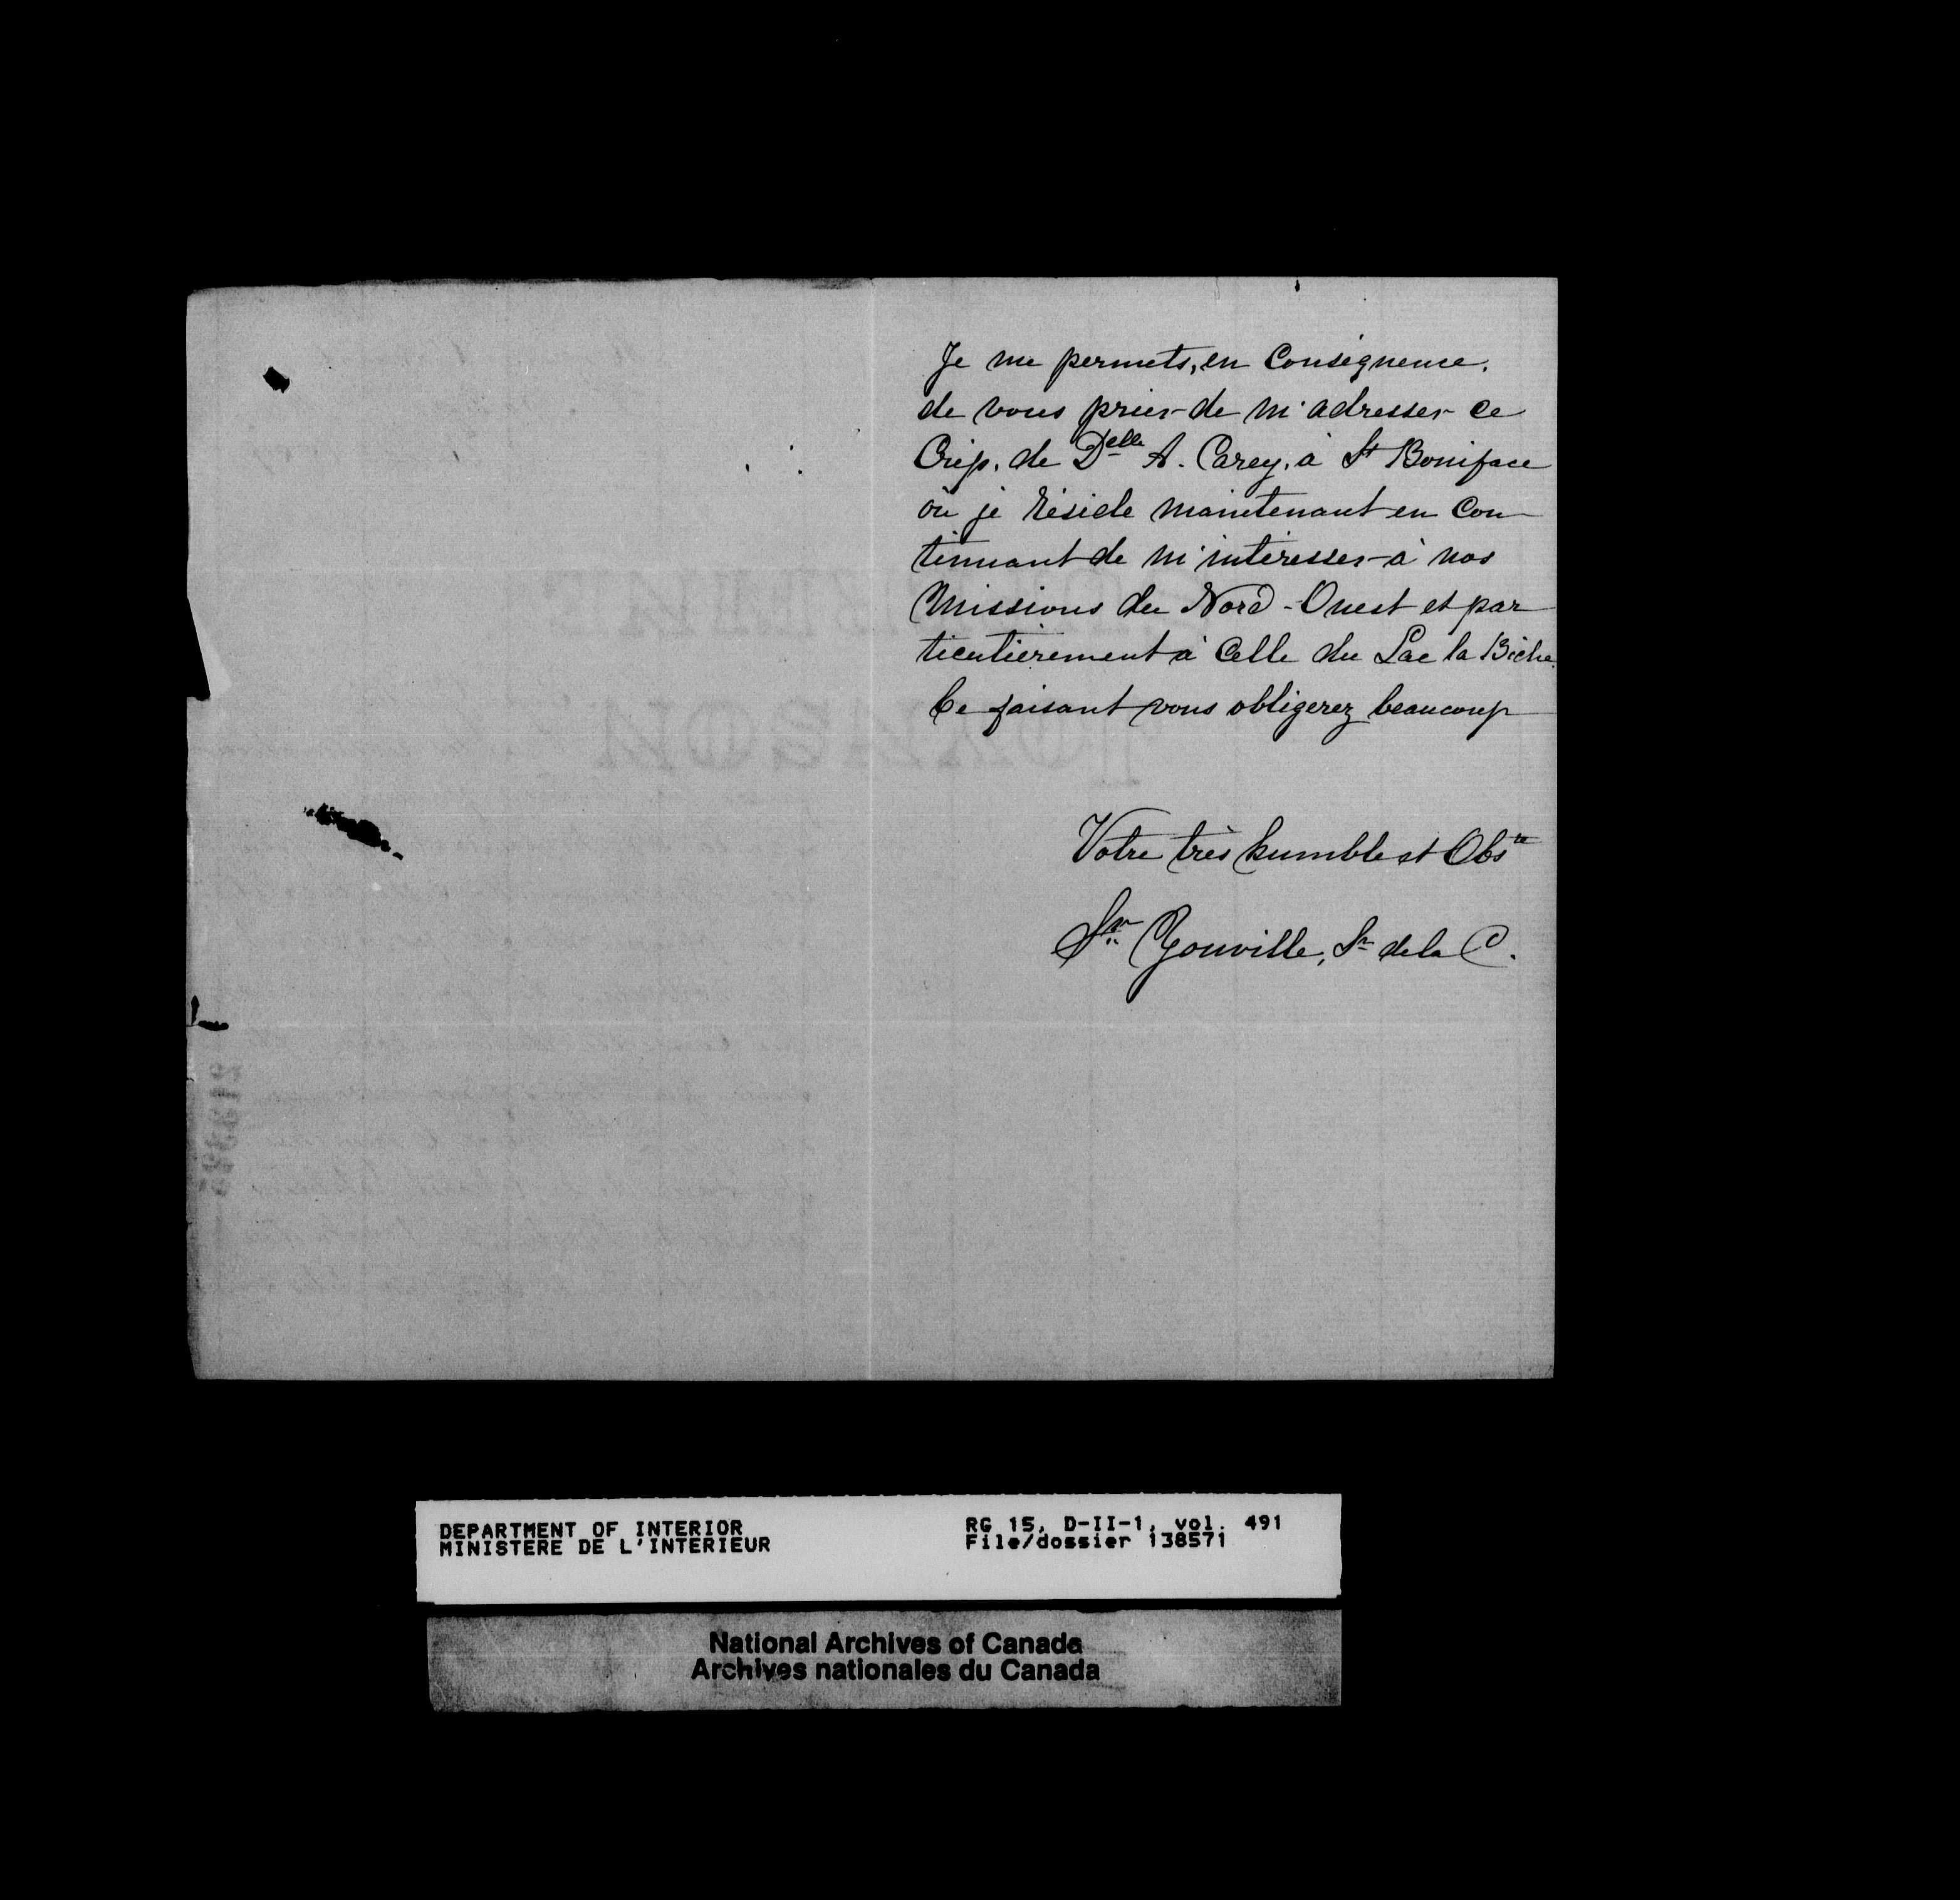 Je me permets, en Conséquence,
de vous prier de m'adresser ce
Crip. de Delle A. Carey, à St Boniface
où je réside maintenant en Con-
tinuant de m'intéresser à nos
Missions du Nord-Ouest et par
ticulièrement à Celle du Lac la Biche.
Ce faisant vous obligerez beaucoup
Votre très humble et Obste
Sr Youville, Sr de la C.
DEPARTMENT OF INTERIOR
MINISTERE DE L'INTERIEUR
RG 15, D-II-1, vol. 491
File/dossier 138571
National Archives of Canada
Archives nationales du Canada